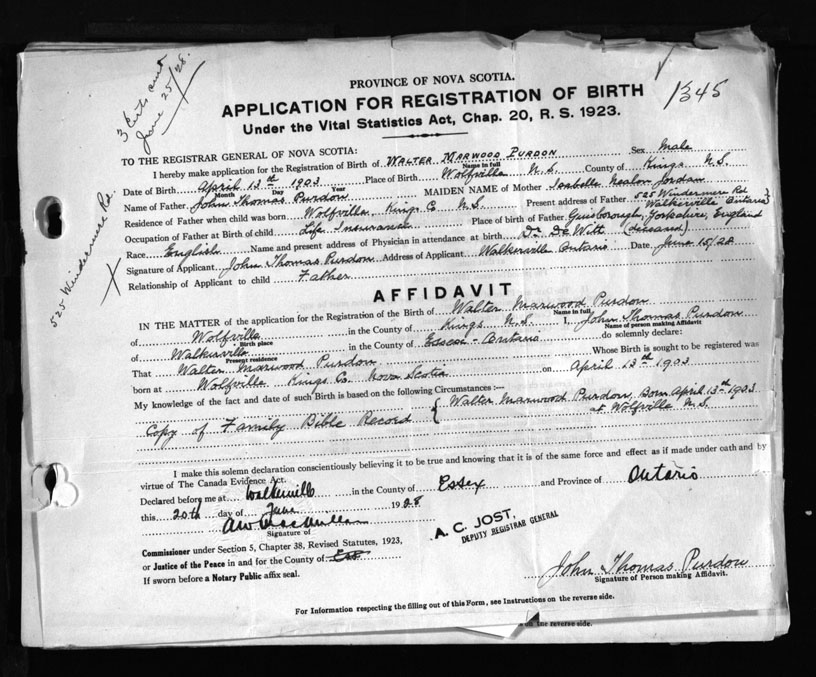 3 Certs sent
June 25/28.
1345
PROVINCE OF NOVA SCOTIA.
APPLICATION FOR REGISTRATION OF BIRTH
Under the Vital Statistics Act, Chap. 20, R. S. 1923.
TO THE REGISTRAR GENERAL OF NOVA SCOTIA:
I hereby make application for the Registration of Birth of WALTER MARWOOD PURDON Sex Male
Name in full
Date of Birth April 13th 1903 Place of Birth Wolfville N.S. County of Kings N.S.
Month Day Year
Name of Father John Thomas Purdon MAIDEN NAME of Mother Isabelle Nealon Jordan
Residence of Father when child was born Wolfville Kings Co N.S Present address of Father 525 Windermere Rd Walkerville Ontario
Occupation of Father at Birth of child Life Insurance Place of birth of Father Guisborough, Yorkshire, England
Race English Name and present address of Physician in attendance at birth Dr De Witt (deceased)
Signature of Applicant John Thomas Purdon Address of Applicant Walkerville Ontario Date June 15/28
Relationship of Applicant to child Father
525 Windermere Rd.
AFFIDAVIT
IN THE MATTER of the application for the Registration of the Birth of Walter Marwood Purdon
Name in full
of Wolfville in the County of Kings N.S. I, John Thomas Purdon
Birth place Name of person making Affidavit
of Walkerville in the County of Essex - Ontario do solemnly declare:
Present residence
That Walter Marwood Purdon Whose Birth is sought to be registered was
born at Wolfville Kings Co. Nova Scotia on April 13th 1903
My knowledge of the fact and date of such Birth is based on the following Circumstances :—
Copy of Family Bible Record { Walter Marwood Purdon, Born April 13th 1903
at Wolfville N.S.
I make this solemn declaration conscientiously believing it to be true and knowing that it is of the same force and effect as if made under oath and by
virtue of The Canada Evidence Act.
Declared before me at Walkerville in the County of Essex and Province of Ontario
this 20th day of June 1928
Signature of
A. C. JOST.
DEPUTY REGISTRAR GENERAL
Commissioner under Section 5, Chapter 38, Revised Statutes, 1923,
or Justice of the Peace in and for the County of
If sworn before a Notary Public affix seal.
John Thomas Purdon
Signature of Person making Affidavit.
For Information respecting the filling out of this Form, see Instructions on the reverse side.
on the reverse side.